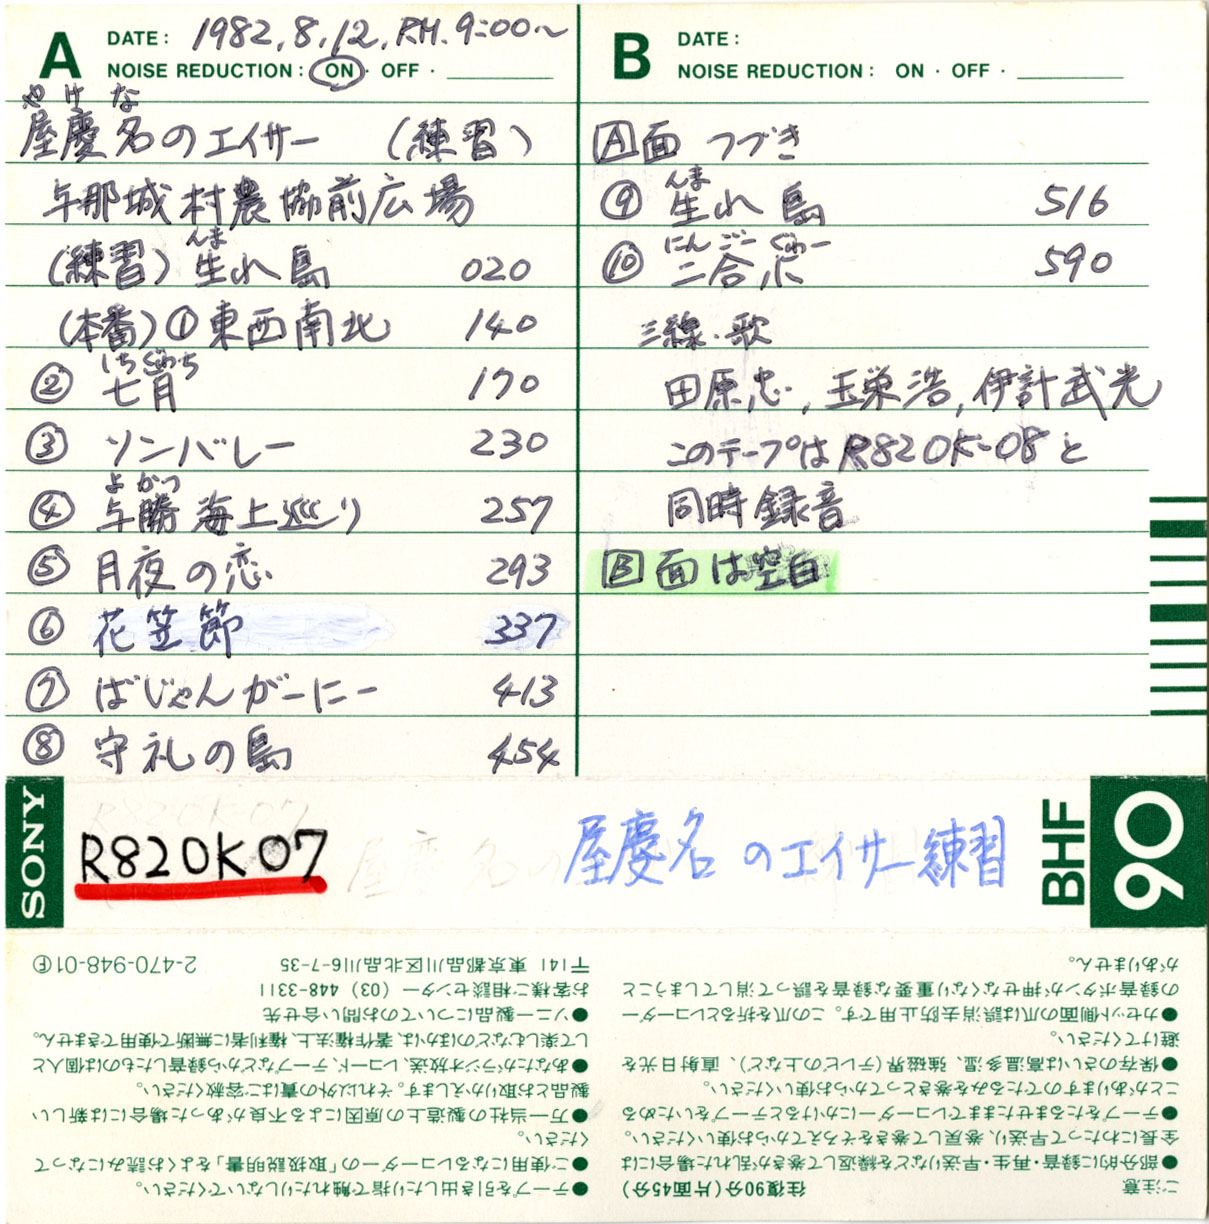 A DATE: 1982.8.12. P.M. 9:00~
NOISE REDUCTION: ON · OFF ·
やけな
屋慶名のエイサー (練習)
与那城村農協前広場
んま
(練習) 生れ島 020
(本番) ① 東西南北 140
しちぐゎち
② 七月 170
③ ソンバレー 230
よかつ
④ 与勝海上巡り 257
⑤ 月夜の恋 293
⑥ 花笠節 337
⑦ ばじゃんがーにー 413
⑧ 守礼の島 454
B DATE:
NOISE REDUCTION: ON · OFF ·
A面 つづき
んま
⑨ 生れ島 516
にんごーぐゎー
⑩ 二合小 590
三線・歌
田原忠, 玉栄浩, 伊計武光
このテープはR820K-08と
同時録音
B面は空白
SONY
R820K07
屋慶名のエイサー練習
BHF
90
ご注意 往復90分(片面45分)
●部分的に録音・再生・早送りなどを繰返して巻きが乱れた場合には
全長にわたって早送り、巻戻して巻きをそろえてからお使いください。
●テープをたるませたままでレコーダーにかけるとテープをいためる
ことがありますのでたるみを巻きとってからお使いください。
●保存のさいは高温多湿、強磁界(テレビの上など)、直射日光を
避けてください。
●カセット側面の爪は誤消去防止用です。この爪を折るとレコーダー
の録音ボタンが押せなくなり重要な録音を誤って消してしまうこと
がありません。
●テープを引き出したり指で触れたりしないでください。
●ご使用になるレコーダーの「取扱説明書」をよくお読みになって
ください。
●万一当社の製造上の原因による不良があった場合には新しい
製品とお取りかえします。それ以外の責はご容赦ください。
●あなたがラジオ放送、レコード、テープなどから録音したものは個人と
して楽しむなどのほかは、著作権法上、権利者に無断で使用できません。
●ソニー製品についてのお問い合せ先
お客様ご相談センター (03) 448-3311
〒141 東京都品川区北品川6-7-35
2-470-948-01Ⓔ